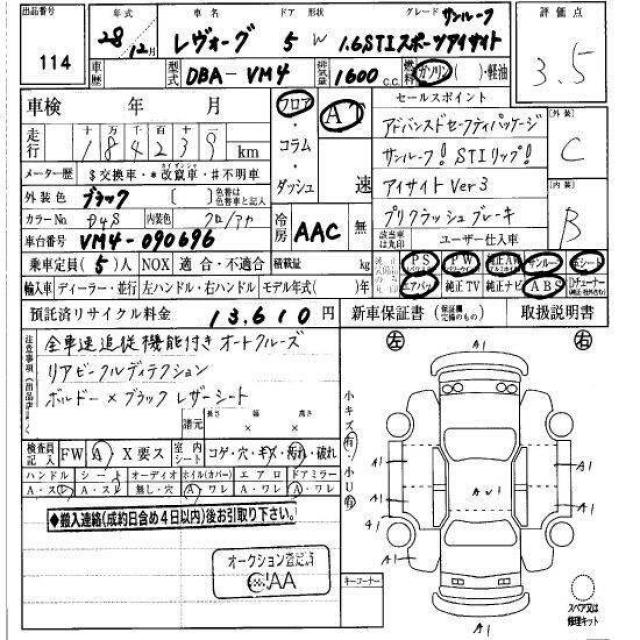 出品番号 年式 車名 ドア 形状 グレード サンルーフ 評価点
114 28年 12月 レヴォーグ 5 W 1.6STIスポーツアイサイト 3.5
車歴 型式 DBA-VM4 排気量 1600 c.c. 燃料 ガソリン ( )・軽油
車検 年 月 フロア AT セールスポイント
走行 十 万 千 百 十 アドバンスドセーフティパッケージ [外装]
184239 km ・コラム・ダッシュ 速 サンルーフ! STIリップ! C
メーター歴 $交換車・*改竄車・#不明車 アイサイト Ver3 [内装]
外装色 ブラック [ ] 色替は色替車と記入 プリクラッシュブレーキ B
カラーNo. D4S 内装色 クロ/アカ 冷房 AAC 無 該当車は丸印 ユーザー仕入車
車台番号 VM4-090696
乗車定員(5)人 NOX 適合・不適合 積載量 kg PS パワステ PW パワーウインド 純正AW アルミホイール サンルーフ 革シート
輸入車 ディーラー・並行 左ハンドル・右ハンドル モデル年式( )年 エアバッグ 純正TV 純正ナビ ABS Dチューナー
預託済リサイクル料金 13,610円 新車保証書 (保証欄完備のもの) 取扱説明書
注意事項 (出品店
全車速追従機能付きオートクルーズ
リアビークルディテクション
ボルドー×ブラックレザーシート
諸元 長さ × 幅 × 高さ
検査員記入 FW A・X要ス 室内シート コゲ・穴・キズ・汚れ・破れ
ハンドル シート オーディオ ホイル(カバー) エアロ ドアミラー
A・スレ A・スレ 無し・穴 A・ワレ A・ワレ A・ワレ
◆搬入連絡(成約日含め4日以内)後お引取り下さい。
オークション査定済
AA
小キズ有・小U有
キーコーナー
左 右
A1
A1 A1
A1 AU1 A1
A1 A1
A1
A1
スペア又は修理キット